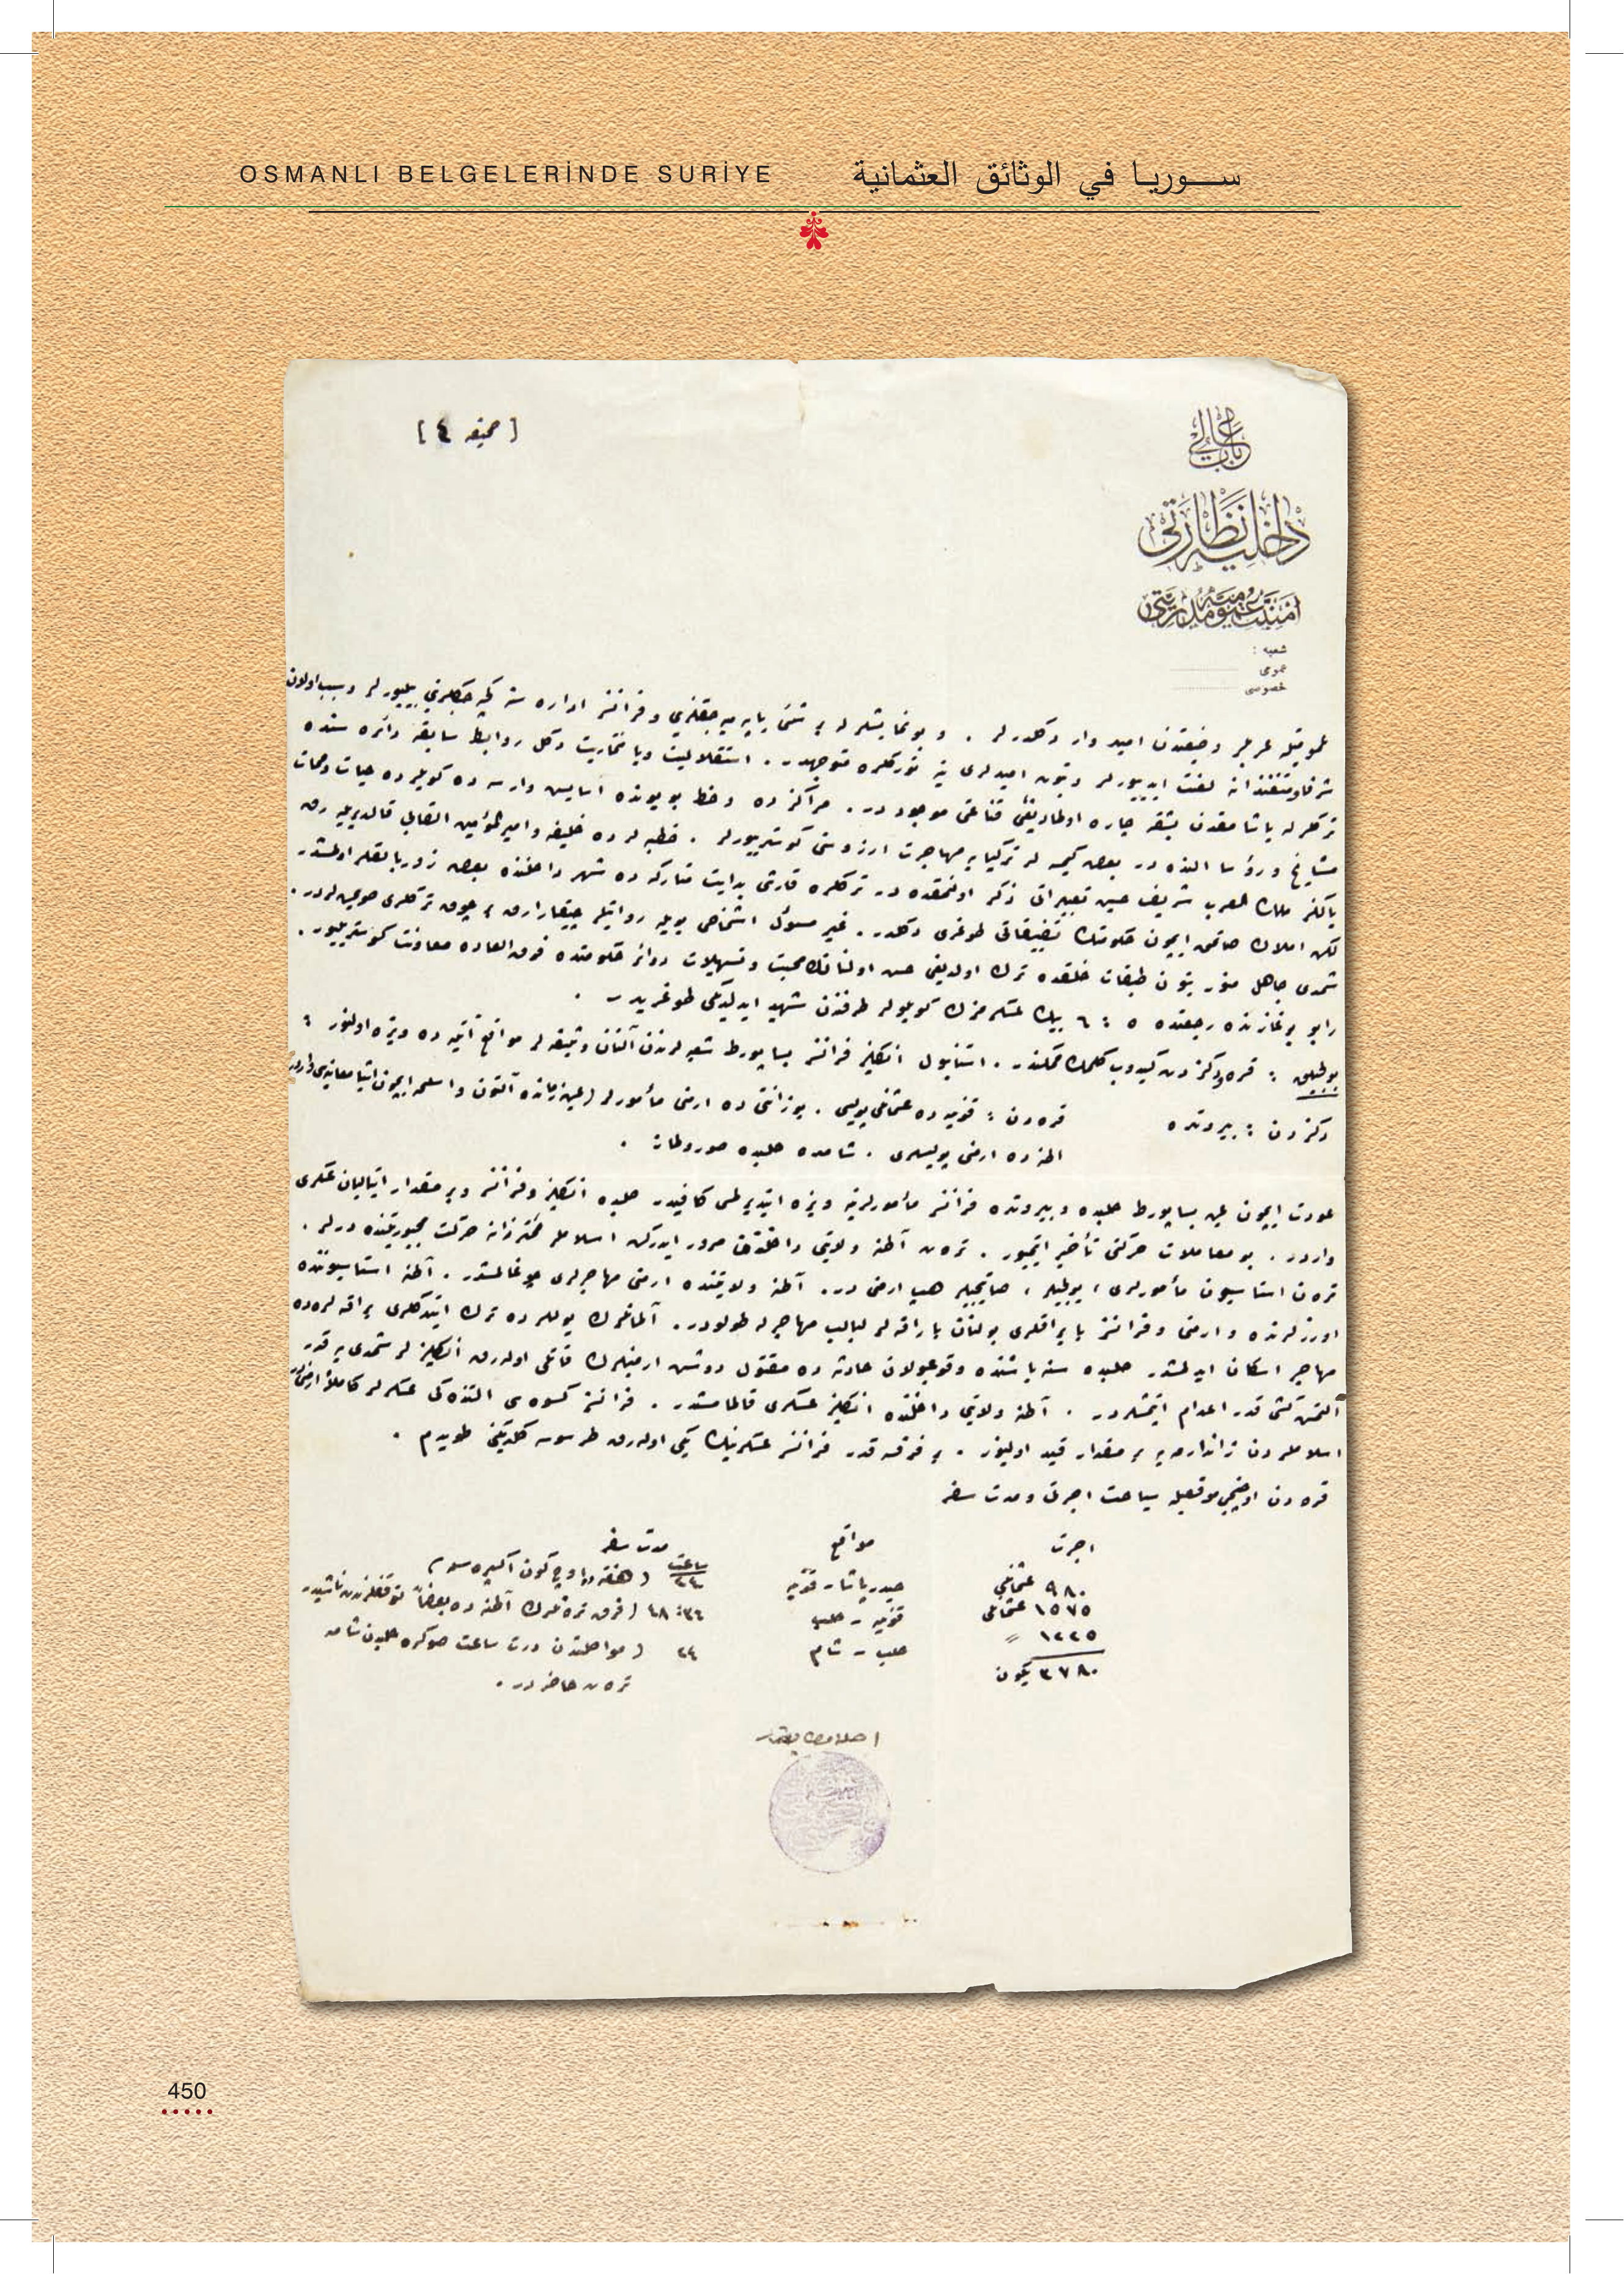 OSMANLI BELGELERİNDE SURİYE
سوريا في الوثائق العثمانية
[ صحيفه ٤ ]
باب عالی
داخلیه نظارتی
امنیت عمومیه مدیریتی
شعبه :
عمومی
خصوصی
عربلر وضعیتدن امید وار دكلدرلر . و بو نمایشلر له بر شئ یاپه میه جقلرینی و فرانسز اداره سنه كچه جكلرینی بیلیورلر و سبب اولان
لعنت ایدییورلر و بتون امیدلری ینه توركلره متوجهدر . استقلالیت ویا مختاریت دكل روابط سابقه دائره سنده
تركلر له یاشامقدن بشقه چاره اولمادیغی قناعتی موجود در . مراكز ده و خط بویونده آسایش وارسه ده كویلر ده حیات و ممات
مشایخ و رؤسا النده در بعض كیمسه لر تركیایه مهاجرت آرزوسنی كوستریورلر . خطبه لر ده خلیفه و امیر المؤمنین القابی قالدیریله رق
یالكز ملك العرب شریف حسین تعبیراتی ذكر اولنمقده در تركلره قارشی بدایت متاركه ده شهر داخلنده بعض زوربالقلر اولمشدر
لكن املاك صاتمق ایچون حكومتك تضییقاتی طوغری دكلدر . غیر مسئول اشخاص بویله روایتلر چیقارارق بر چوق تركلری صویمشلردر .
شمدی جاهل منور بتون طبقات خلقده ترك اولدیغی حس اولنانلره محبت و تسهیلات دوائر حكومتده فوق العاده معاونت كوسترییور .
رابو بوغازنده رجعتده ٥ : ٦ بیك عسكرمزك كویلولر طرفندن شهید ایدلدیكی طوغریدر .
یولجیلق : قره و دكزدن كیدوب كلمك ممكندر . استانبول انكلیز فرانسز پساپورط شعبه لرندن آلنان وثیقه لر مواقع آتیه ده ویزه اولنور :
دكزدن : بیروتده
قره دن : قونیه ده عثمانلی پولیسی . بوزانتی ده ارمنی مأمورلر
اطنه ده ارمنی پولیسلری . شامده حلبده
عودت ایچون عین پساپورط حلبده و بیروتده فرانسز مأمورلرینه ویزه ایتدیرلمسی كافیدر حلبده انكلیز و فرانسز و بر مقدار ایتالیان عسكری
واردر . بو معاملات حركتی تأخیر ایتمیور . ترن آطنه ولایتی داخلندن مرور ایدركن اسلاملر محترزانه حركت مجبوریتنده درلر .
ترن استاسیون مأمورلری ، یولجیلر ، صاتیجیلر هپ ارمنی در . آطنه ولایتنده ارمنی مهاجرلری چوغالمشدر . آطنه استاسیوننده
اوزرلرنده ارمنی و فرانسز بایراقلری بولنان باراقه لر لبالب مهاجرله طولودر . آلمانلرك یوللرده ترك ایتدكلری باراقه لرده ده
مهاجر اسكان ایدلمشدر حلبده سنه باشنده وقوعبولان حادثه ده مقتول دوشن ارمنیلرك قاتلی اوله رق انكلیزلر شمدی یه قدر
آلتمش كشی قدر اعدام ایتمشلردر . آطنه ولایتی داخلنده انكلیز عسكری قالمامشدر . فرانسز كسوه سی آلتنده كی عسكرلر كاملاً ارمنی
اسلاملردن ژاندارمه یه بر مقدار قید اولنیور . بر فرقه قدر فرانسز عسكرینك یكی اوله رق طرسوسه كلدیكنی طویدم .
قره دن اوچنجی موقعله سیاحت اجرتی و مدت سفر
اجرت مواقع مدت سفر
ساعت
٩٨٠ عثمانلی حیدرپاشا - قونیه ٢٤ ( هفته ده اوچ كون اكسپره سله )
١٥٧٥ عثمانلی قونیه - حلب ٣٦ : ٤٨ ( فرق ترنلرك آطنه ده بعضاً توقفلرندن ناشیدر
١٢٢٥ 〃 حلب - شام ٢٤ ( مواصلتدن درت ساعت صوكره حلبدن شامه
٣٧٨٠ یكون
ترن حاضر در .
450